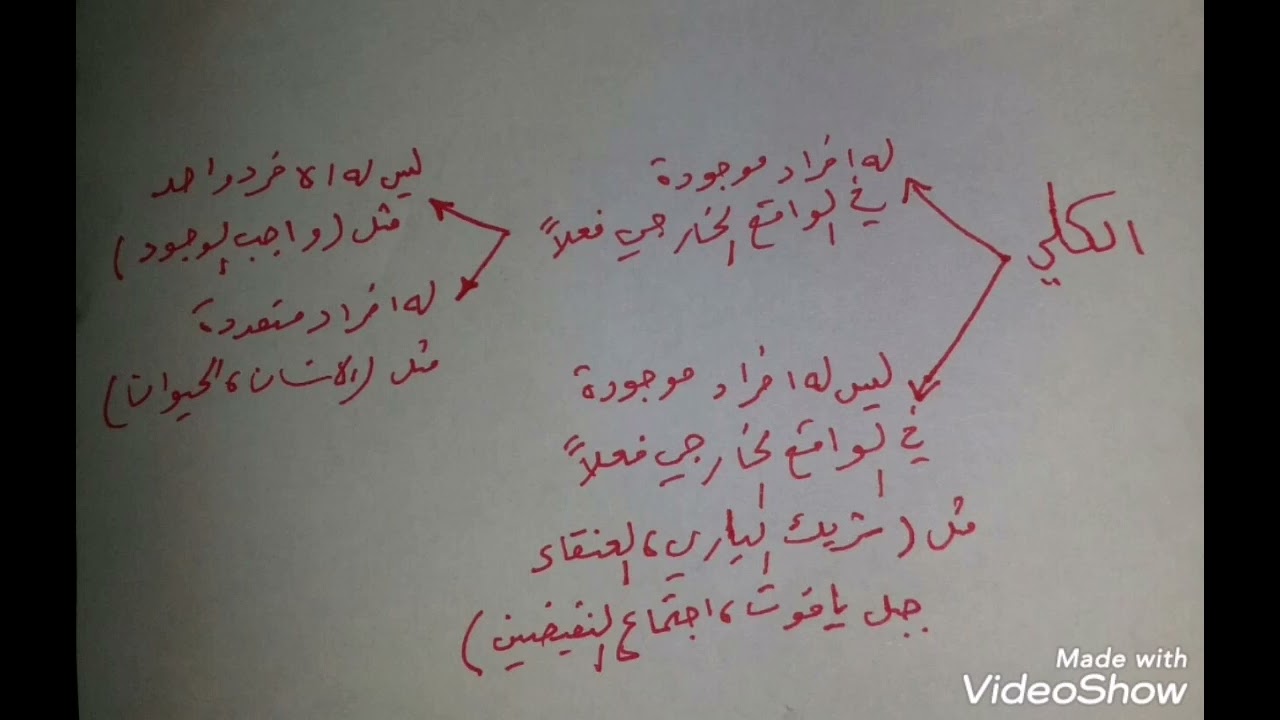 الكلي
له افراد موجودة
في الواقع الخارجي فعلاً
ليس له الا فرد واحد
مثل (واجب الوجود)
له افراد متعددة
مثل (الانسان، الحيوان)
ليس له افراد موجودة
في الواقع الخارجي فعلاً
مثل (شريك الباري، العنقاء
جبل ياقوت، اجتماع النقيضين)
Made with
VideoShow